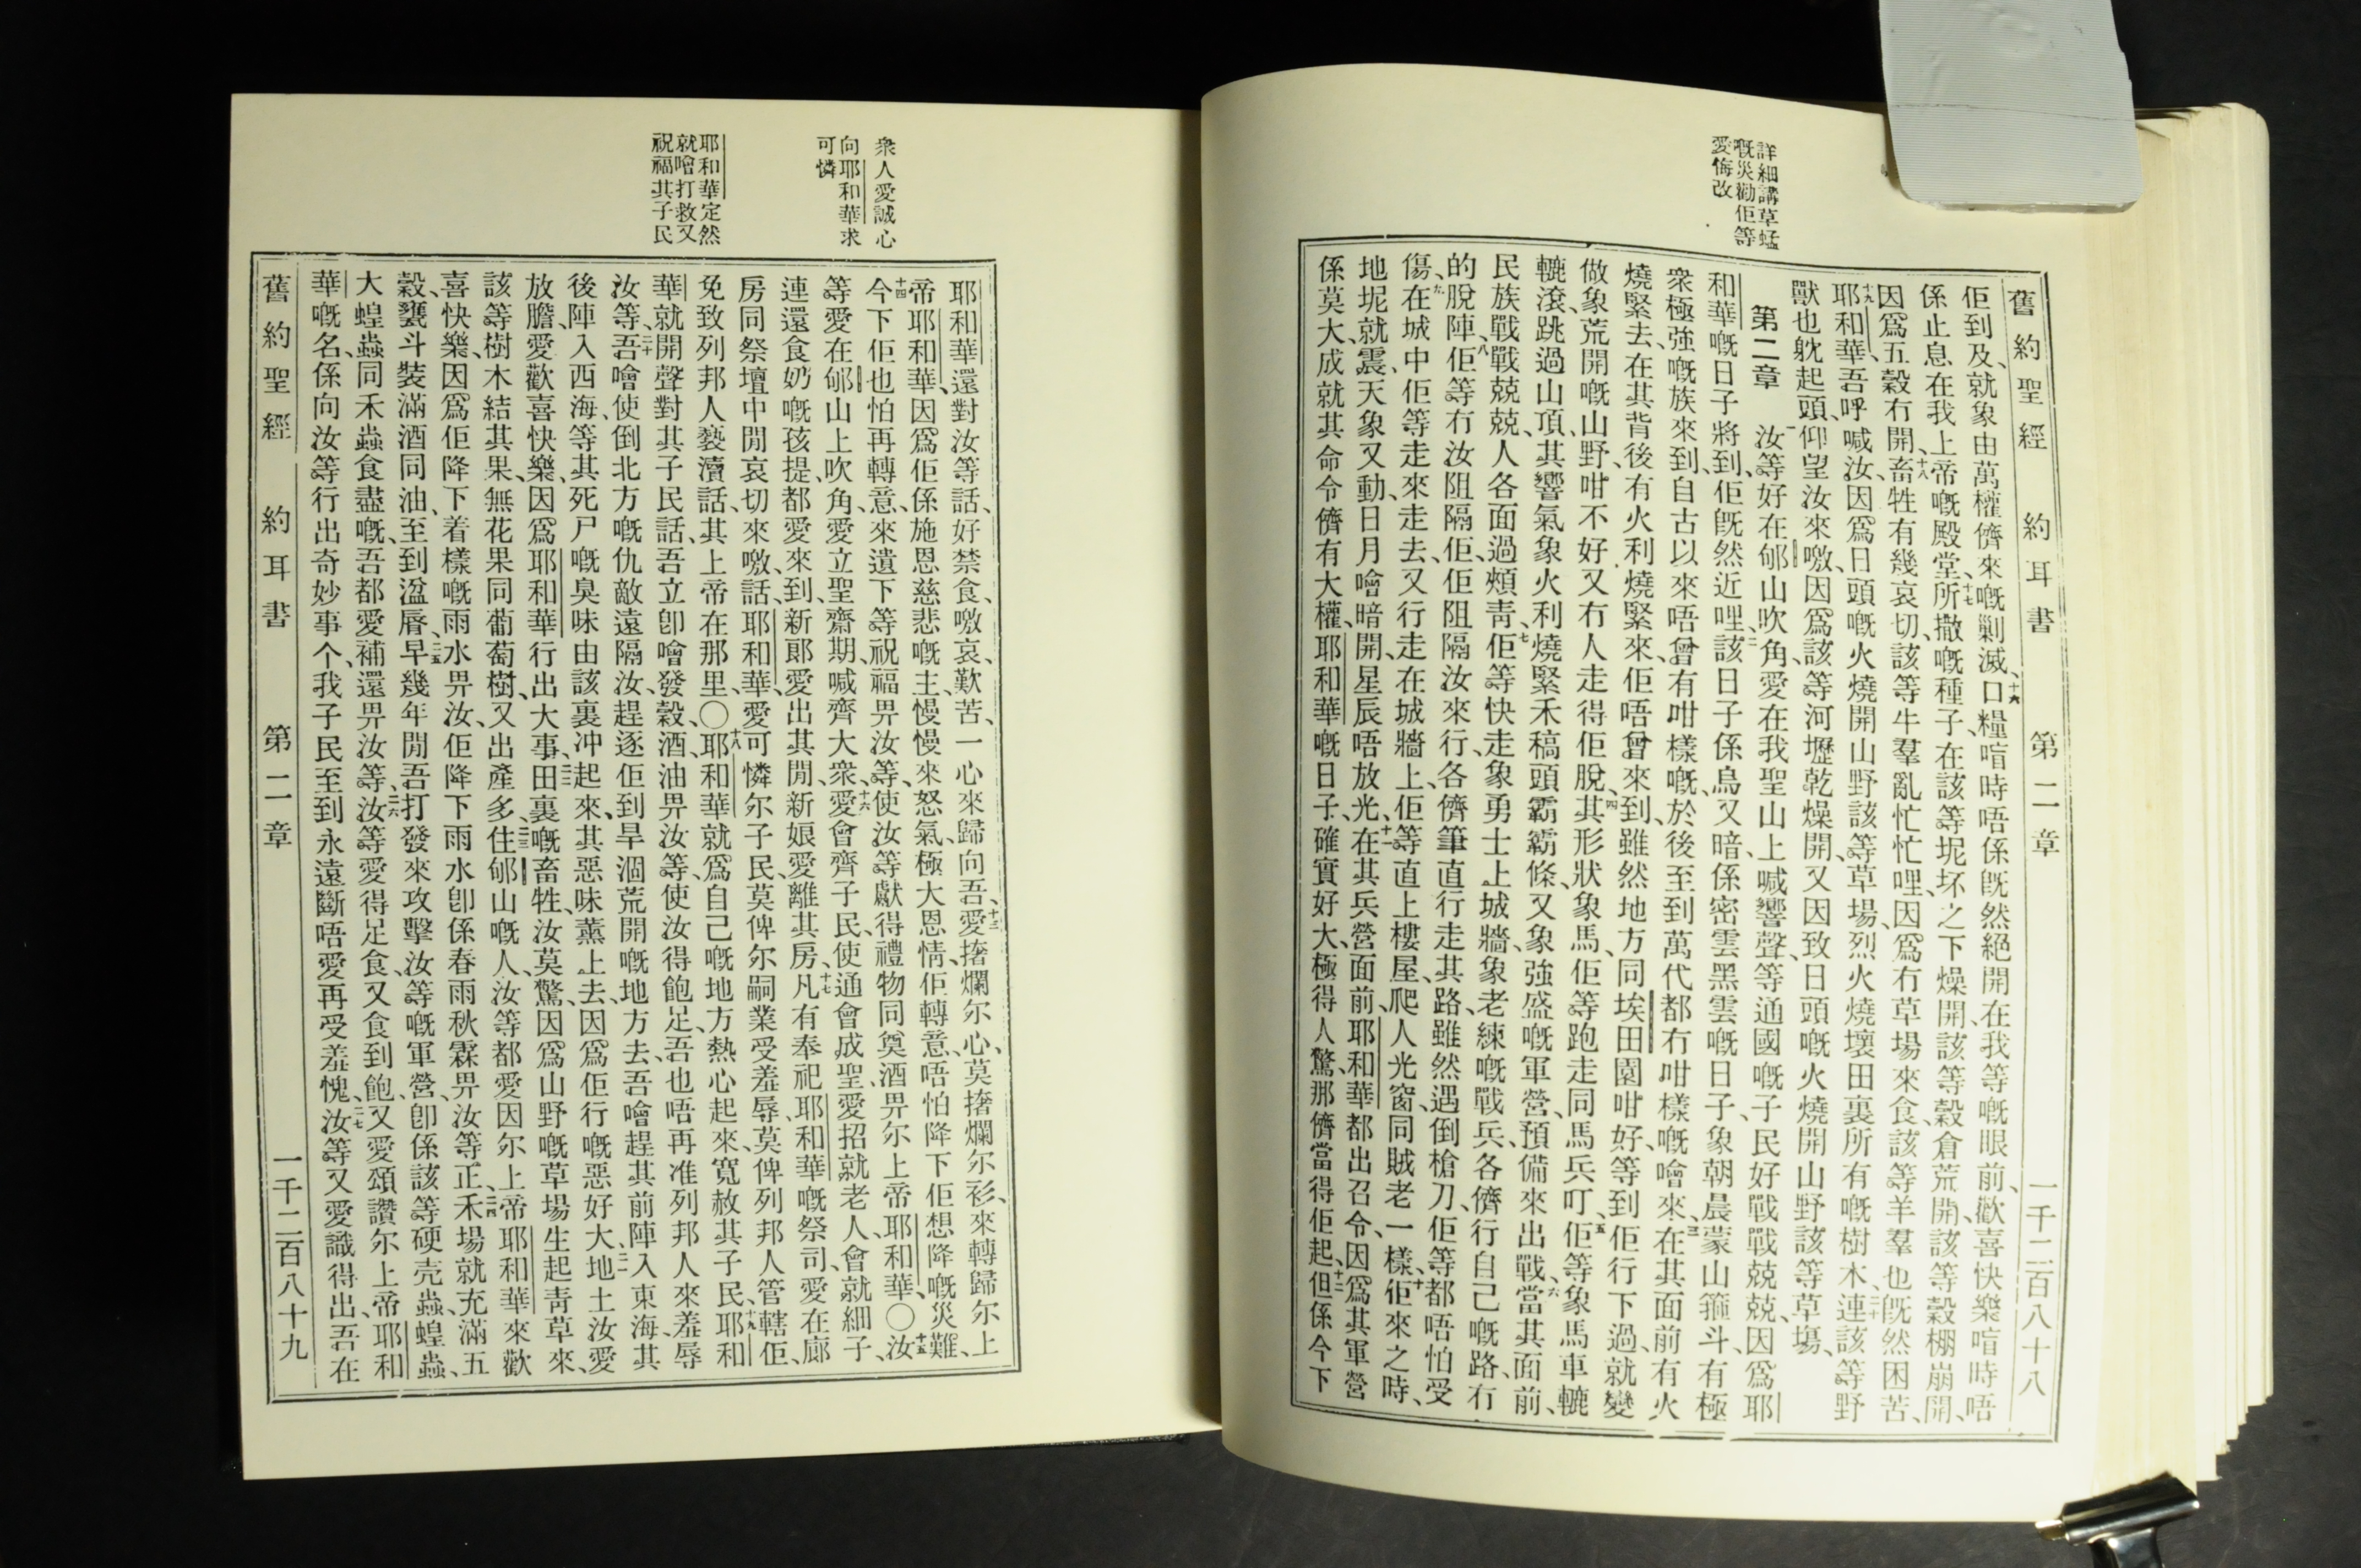 詳細講草蜢
嘅災勸佢等
愛悔改
舊約聖經 約耳書 第二章 一千二百八十八
佢到及、就象由萬權儕來嘅剿滅、十六口糧喧時唔係旣然絕開在我等嘅眼前、歡喜快樂喧時唔
係止息在我上帝嘅殿堂、十七所撒嘅種子、在該等坭坏之下燥開、該等穀倉荒開、該等穀棚崩開、
因爲五穀冇開、十八畜牲有幾哀切、該等牛羣亂忙忙哩、因爲冇草場來食、該等羊羣也旣然困苦、
十九耶和華、吾呼喊汝、因爲日頭嘅火燒開山野該等草場、烈火燒壞田裏所有嘅樹木、二十連該等野
獸也躭起頭、仰望汝來噭、因爲該等河壢乾燥開、又因致日頭嘅火燒開山野該等草塲、
第二章 一汝等好在郇山吹角、愛在我聖山上喊響聲、等通國嘅子民好戰戰兢兢、因爲耶
和華嘅日子將到、佢旣然近哩、二該日子係烏又暗、係密雲黑雲嘅日子、象朝晨蒙山箍斗、有極
衆極強嘅族來到、自古以來唔曾有咁樣嘅、於後至到萬代都冇咁樣嘅噲來、三在其面前有火
燒緊去、在其背後有火利燒緊來、佢唔曾來到、雖然地方同埃田園咁好、等到佢行下過、就變
做象荒開嘅山野、咁不好又冇人走得佢脫、四其形狀象馬、佢等跑走同馬兵叮、五佢等象馬車轆
轆滾、跳過山頂、其響氣象火利燒緊禾稿頭霸霸條、又象強盛嘅軍營、預備來出戰、六當其面前、
民族戰戰兢兢、人各面過頰靑、七佢等快走象勇士上城牆、象老練嘅戰兵、各儕行自己嘅路、冇
的脫陣、八佢等冇汝阻隔佢、佢阻隔汝來行、各儕筆直行走其路、雖然遇倒槍刀、佢等都唔怕受
傷、九在城中佢等走來走去、又行走在城牆上、佢等直上樓屋、爬人光窗、同賊老一樣、十佢來之時、
地坭就震、天象又動、日月噲暗開、星辰唔放光、十一在其兵營面前、耶和華都出召令、因爲其軍營
係莫大、成就其命令儕有大權、耶和華嘅日子、確實好大、極得人驚、那儕當得佢起、十二但係今下
衆人愛誠心
向耶和華求
可憐
耶和華定然
就噲打救又
祝福其子民
耶和華還對汝等話、好禁食、噭哀、歎苦、一心來歸向吾、十三愛撦爛尔心、莫撦爛尔衫、來轉歸尔上
帝耶和華、因爲佢係施恩慈悲嘅主、慢慢來怒氣、極大恩情、佢轉意、唔怕降下佢想降嘅災難、
十四今下佢也怕再轉意、來遺下等祝福畀汝等、使汝等獻得禮物同奠酒畀尔上帝、耶和華、〇十五汝
等愛在郇山上吹角、愛立聖齋期、喊齊大衆、十六愛會齊子民、使通會成聖、愛招就老人、會就細子、
連還食奶嘅孩提、都愛來到、新郞愛出其閒、新娘愛離其房、十七凡有奉祀耶和華嘅祭司、愛在廊
房同祭壇中閒哀切來噭、話、耶和華、愛可憐尔子民、莫俾尔嗣業受羞辱、莫俾列邦人管轄佢、
免致列邦人褻瀆話、其上帝在那里、〇十八耶和華就爲自己嘅地方熱心起來、寬赦其子民、十九耶和
華就開聲對其子民話、吾立卽噲發穀、酒、油畀汝等、使汝得飽足、吾也唔再准列邦人來羞辱
汝等、二十吾噲使倒北方嘅仇敵遠隔汝、趕逐佢到旱涸荒開嘅地方去、吾噲趕其前陣入東海、其
後陣入西海、等其死尸嘅臭味由該裏冲起來、其惡味薰上去、因爲佢行嘅惡好大、二一地土汝愛
放膽、愛歡喜快樂、因爲耶和華行出大事、二二田裏嘅畜牲、汝莫驚、因爲山野嘅草場生起靑草來、
該等樹木結其果、無花果同葡萄樹、又出產多、二三住郇山嘅人、汝等都愛因尔上帝耶和華來歡
喜快樂、因爲佢降下着樣嘅雨水畀汝、佢降下雨水卽係春雨秋霖畀汝等、正、二四禾場就充滿五
穀、甕斗裝滿酒同油、至到湓脣、二五早幾年閒吾打發來攻擊汝等嘅軍營、卽係該等硬壳蟲、蝗蟲、
大蝗蟲同禾蟲食盡嘅、吾都愛補還畀汝等、二六汝等愛得足食、又食到飽、又愛頌讚尔上帝耶和
華嘅名、係向汝等行出奇妙事个、我子民至到永遠斷唔愛再受羞愧、二七汝等又愛識得出、吾在
舊約聖經 約耳書 第二章 一千二百八十九